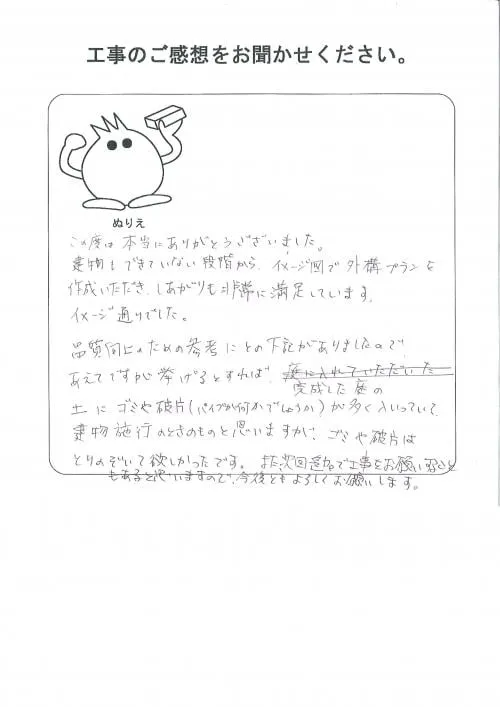 工事のご感想をお聞かせください。
ぬりえ
この度は本当にありがとうございました。
建物もできていない段階から、イメージ図で外構プランを
作成いただき、しあがりも非常に満足しています。
イメージ通りでした。
品質向上のための参考にとの下記がありましたので、
あえてですが挙げるとすれば、庭に入れていただいた
完成した庭の
土にゴミや破片(パイプか何かでしょうか)が多く入っていて、
建物施行のときのものと思いますが、ゴミや破片は
とりのぞいて欲しかったです。また次回追加で工事をお願いすること
もあると思いますので、今後ともよろしくお願いします。